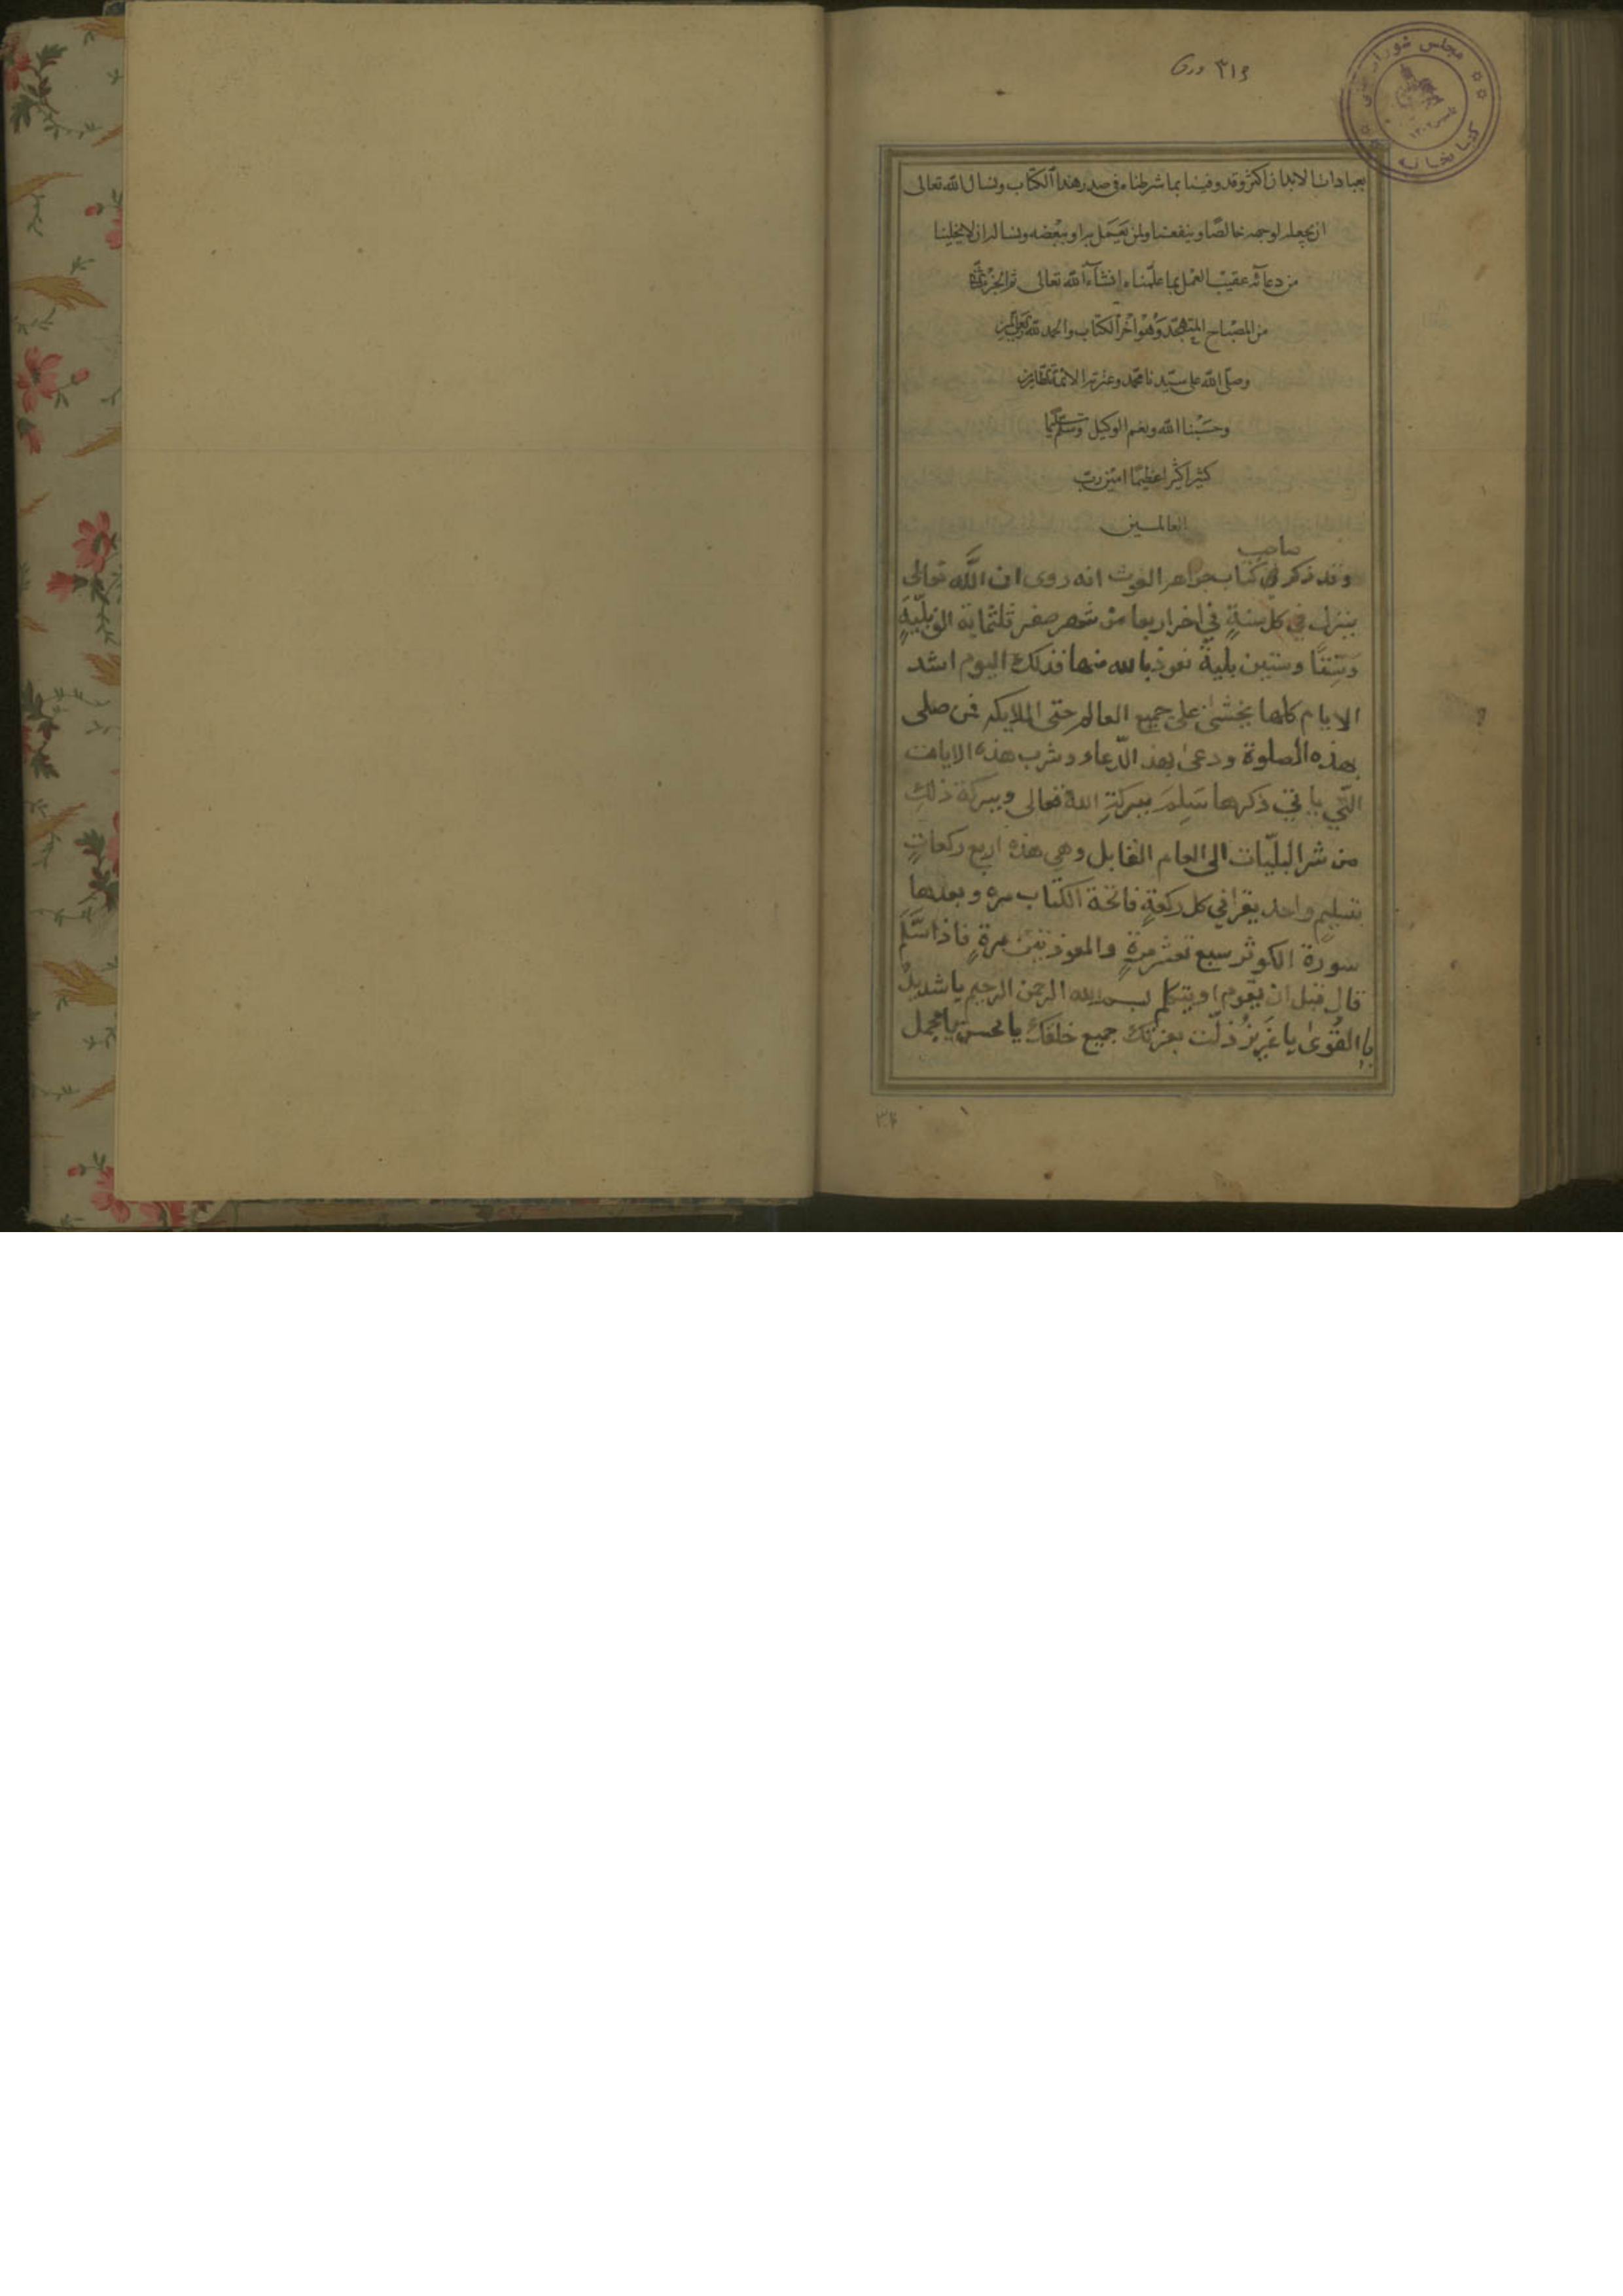 ٣١٦ ورق
مجلس شورای ملی
کتابخانه
بعبادات الابدان اکثر وقد وفینا بما شرطناه فی صدر هذا الکتاب ونسال الله تعالی
ان یجعله لوجهه خالصًا وینفعنا ولمن یعمل به او ببعضه ونساله ان لا یخلینا
من دعائه عقیب العمل بما علمناه انشاء الله تعالی تم الجزء الثانی
من المصباح المتهجد وهو اخر الکتاب والحمد لله رب العالمین
وصلی الله علی سیدنا محمد وعترته الائمة الطاهرین
وحسبنا الله ونعم الوکیل وسلم تسلیما
کثیرا کثیرا عظیمًا امین رب
العالمـین
صاحب
وقد ذکر فی کتاب جواهر انه روی ان الله تعالی
ینزل فی کل سنةٍ فی اخر اربعا من شهر صفر ثلثمایة الف بلیّةٍ
وستین بلیة نعوذ بالله منها فذلک الیوم اشد
الایام کلها یخشی علی جمیع العالم حتی الملایکه فمن صلی
بهذه الصلوة ودعی بهذ الدّعاء وشرب هذه الایات
التّی یاتی ذکرها سَلِمَ ببرکةِ الله تعالی وببرکة ذلک
من شر البلیّات الی العام القابل وهی هذه اربع رکعاتٍ
بتسلیمٍ واحد یقرا فی کل رکعةٍ فاتحة الکتاب مره وبعدها
سورة الکوثر سبع عشر مرةٍ والمعوذتین مرةٍ فاذا سَلَّمَ
قال قبل ان یقوم او یتکلم بسم الله الرحمن الرحیم یا شدیدُ
القُویٰ یا عَزیزُ ذلّت بعزتک جمیع خلقک یا محسن یا مجمل